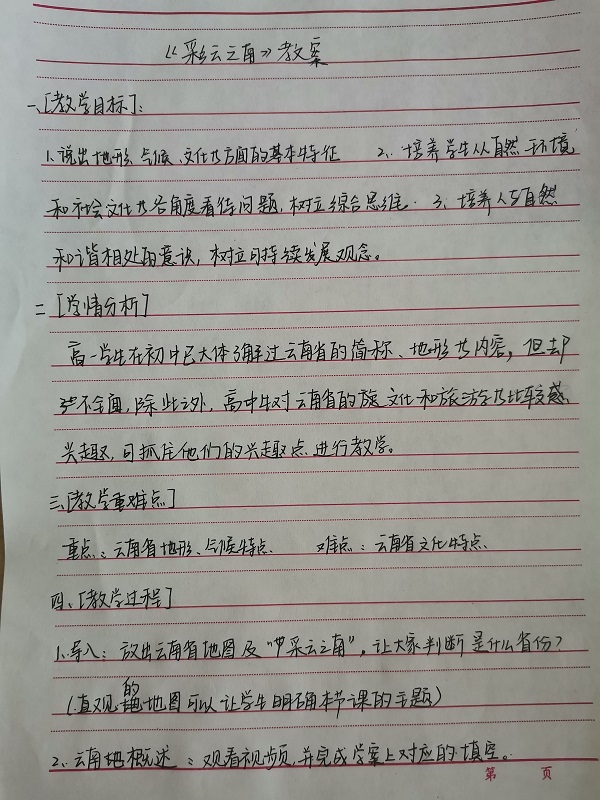 《彩云之南》教案
一、[教学目标]:
1、说出地形、气候、文化等方面的基本特征 2、培养学生从自然环境
和社会文化等各角度看待问题,树立综合思维. 3、培养人与自然
和谐相处的意识,树立可持续发展观念。
二 [学情分析]
高一学生在初中已大体了解过云南省的简称、地形等内容,但却
不全面,除此之外,高中生对云南省的 文化和旅游等比较感
兴趣,可抓住他们的兴趣点进行教学。
三、[教学重难点]
重点:云南省地形、气候特点. 难点:云南省文化特点.
四、[教学过程]
1、导入:放出云南省地图及“ 彩云之南”,让大家判断是什么省份?
(直观的地图可以让学生明确本节课的主题)
2、云南地概述:观看视频,并完成学案上对应的填空。
第 页